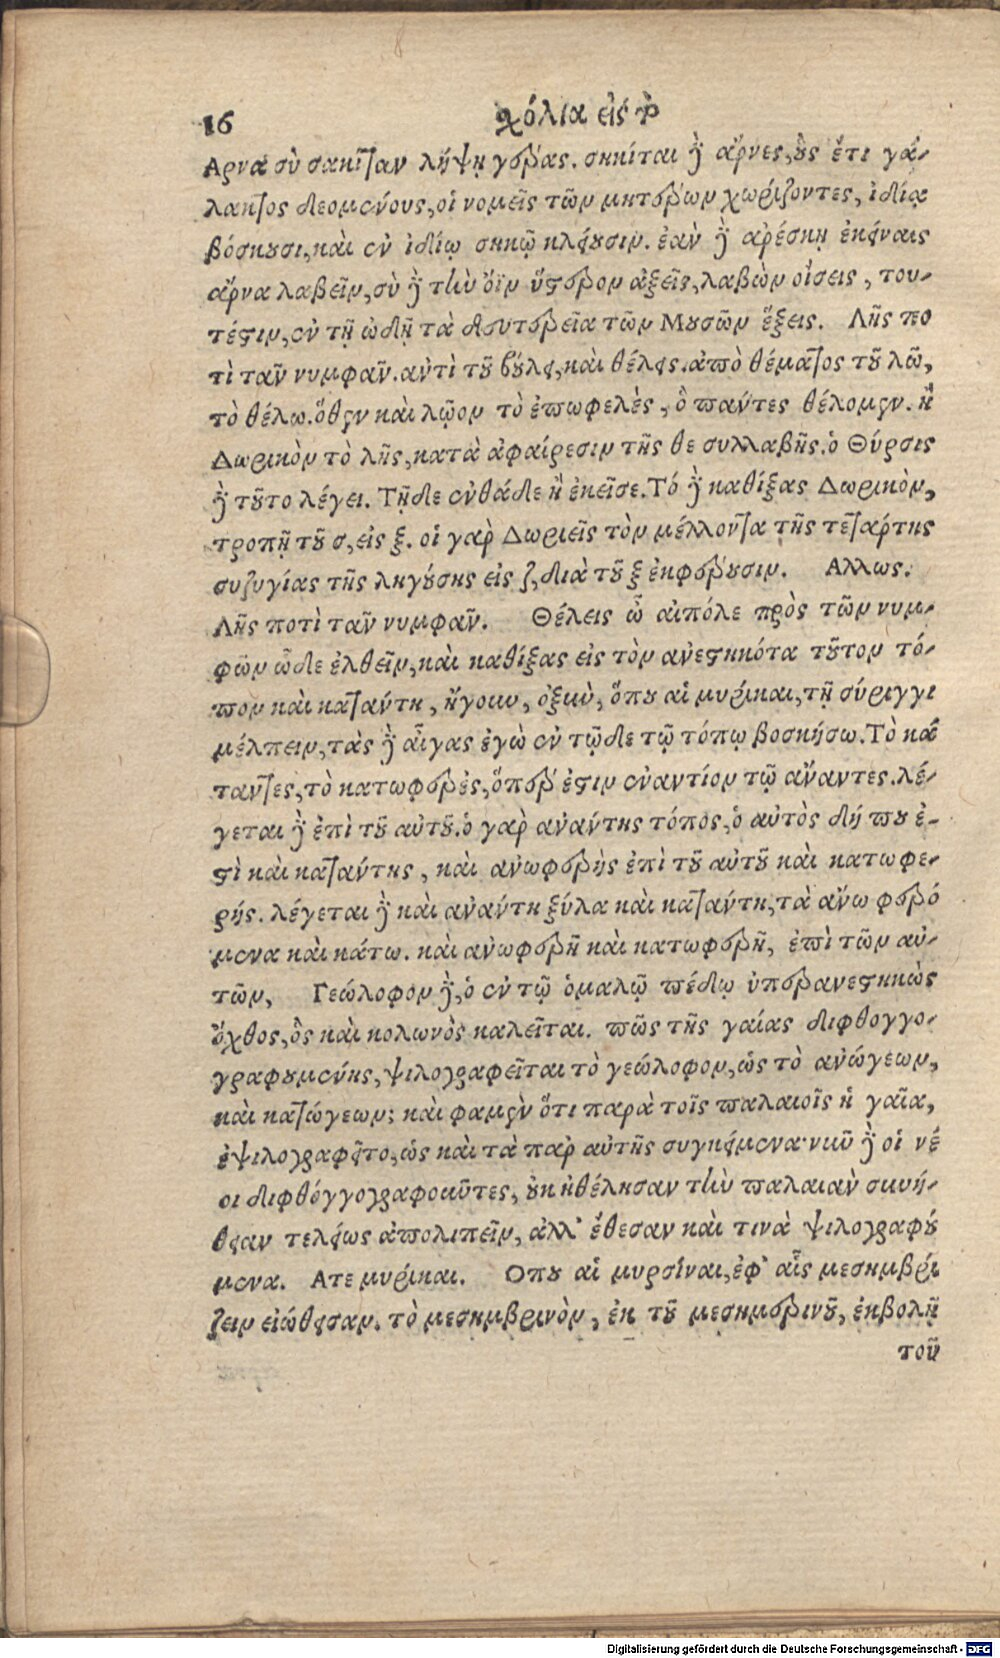 16 σχόλια εἰς τὸ
Αρνα σὺ σακίταν λήψῃ γέρας. σηκίται ἢ ἄρνες, οὓς ἔτι γά-
λακτος δεομένους, οἱ νομεῖς τῶν μητέρων χωρίζοντες, ἰδίᾳ
βόσκουσι, καὶ ἐν ἰδίῳ σηκῷ κλείουσιν. ἐὰν δὲ ἀρέσκῃ ἐκείναις
ἄρνα λαβεῖν, σὺ δὲ τὴν ὄϊν ὕστερον ἀξεῖς, λαβὼν οἴσεις, του-
τέστιν, ἐν τῇ ᾠδῇ τὰ δευτερεῖα τῶν Μουσῶν ἕξεις. Λῇς πο
τὶ τᾶν νυμφᾶν. ἀντὶ τοῦ βούλει, καὶ θέλεις. ἀπὸ θέματος τοῦ λῶ,
τὸ θέλω. ὅθεν καὶ λῷον τὸ ἐπωφελὲς, ὃ πάντες θέλομεν. ἢ
Δωρικὸν τὸ λῇς, κατὰ ἀφαίρεσιν τῆς θε συλλαβῆς. ὁ Θύρσις
δὲ τοῦτο λέγει. Τῇδε ἐνθάδε ἢ ἐκεῖσε. Τό δὲ καθίξας Δωρικὸν,
τροπῇ τοῦ σ, εἰς ξ. οἱ γὰρ Δωριεῖς τὸν μέλλοντα τῆς τετάρτης
συζυγίας τῆς ληγούσης εἰς ζ, διὰ τοῦ ξ ἐκφέρουσιν. Αλλως.
Λῇς ποτὶ τᾶν νυμφᾶν. Θέλεις ὦ αἰπόλε πρὸς τῶν νυμ-
φῶν ὧδε ἐλθεῖν, καὶ καθίξας εἰς τὸν ἀνεστηκότα τοῦτον τό-
πον καὶ κατάντη, ἤγουν, ὀξὺν, ὅπου αἱ μυρίκαι, τῇ σύριγγι
μέλπειν, τὰς δὲ αἶγας ἐγὼ ἐν τῷδε τῷ τόπῳ βοσκήσω. Τὸ κά
ταντες, τὸ κατωφερὲς, ὅπερ ἐστιν ἐναντίον τῷ ἄναντες. λέ-
γεται δὲ ἐπὶ τοῦ αὐτοῦ. ὁ γὰρ ἀνάντης τόπος, ὁ αὐτὸς δή που ἐ-
στὶ καὶ κατάντης, καὶ ἀνωφερὴς ἐπὶ τοῦ αὐτοῦ καὶ κατωφε-
ρής. λέγεται δὲ καὶ ἀνάντη ξύλα καὶ κατάντη, τὰ ἄνω φερό
μενα καὶ κάτω. καὶ ἀνωφερῆ καὶ κατωφερῆ, ἐπὶ τῶν αὐ-
τῶν, Γεώλοφον δὲ, ὁ ἐν τῷ ὁμαλῷ πέδῳ ὑπερανεστηκὼς
ὄχθος, ὃς καὶ κολωνὸς καλεῖται. πῶς τῆς γαίας διφθογγο-
γραφουμένης, ψιλογραφεῖται τὸ γεώλοφον, ὡς τὸ ἀνώγεων,
καὶ κατώγεων; καὶ φαμὲν ὅτι παρὰ τοῖς παλαιοῖς ἡ γαῖα,
ἐψιλογραφεῖτο, ὡς καὶ τὰ παρ αὐτῆς συγκείμενα· νῦν δὲ οἱ νέ
οι διφθόγγογραφοῦντες, οὐκ ἠθέλησαν τὴν παλαιὰν συνή-
θειαν τελείως ἀπολιπεῖν, ἀλλ' ἔθεσαν καὶ τινὰ ψιλογραφού
μενα. Ατε μυρίκαι. Οπου αἱ μυρσίναι, ἐφ' αἷς μεσημβρί
ζειν εἰώθεσαν. τὸ μεσημβρινὸν, ἐκ τοῦ μεσημερινοῦ, ἐκβολῇ
τοῦ
Digitalisierung gefördert durch die Deutsche Forschungsgemeinschaft - DFG